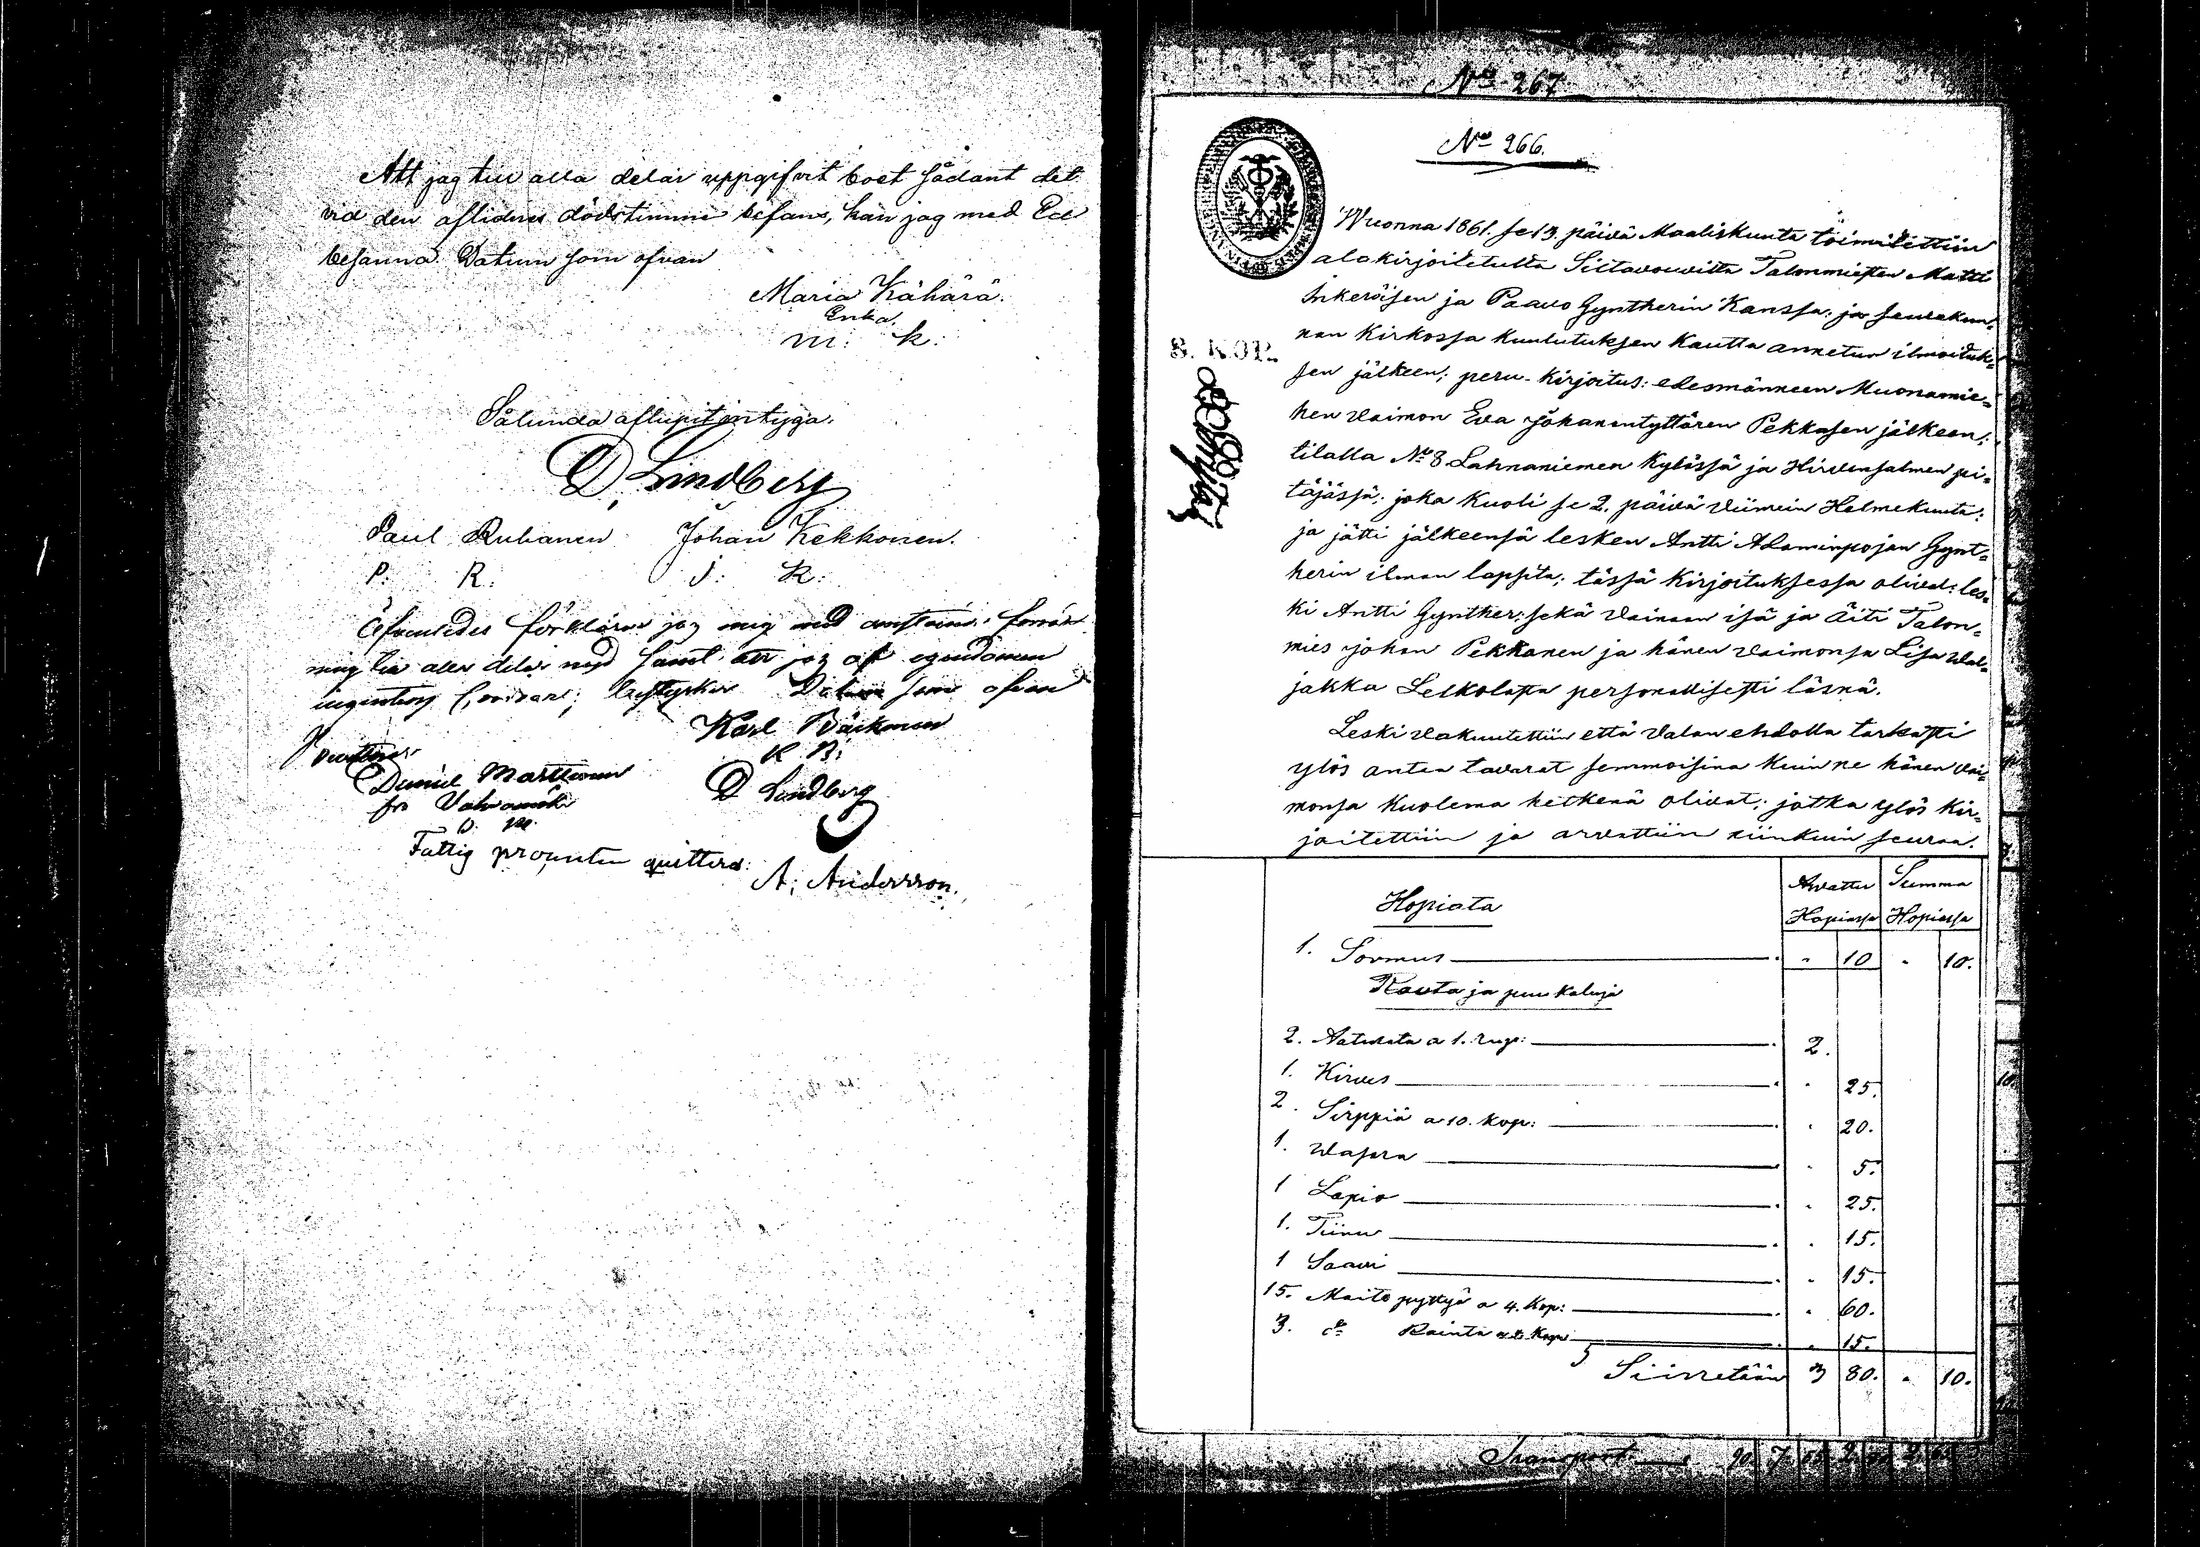 Att jag till alla delar uppgifvit boet sådant det
vid den aflidnes dödstimme befans, kan jag med Ed
besanna. Datum som ofvan
Maria Kähärä.
Enka.
M: K:
Sålunda aflupit intyga.
D. Lindberg
Paul Ruhanen Johan Kekkonen.
P: R: J: K:
förklarar jag mig med
mig till alla delar nöjd samt att jag af egendomen
Datum som ofvan
Karl Bäckman
K B:
Daniel Marttinen
D Lindberg
D. M.
Fattig procenten quitterd:
A. Andersson.
No 267
No 266.
Wuonna 1861. se 13. päivä Maaliskuuta toimitettiin
alakirjoitetulta Siltavouvilta Talonmiesten Matti
Inkeröisen ja Paavo Gyntherin Kanssa; ja seurakun-
nan Kirkossa kuulutuksen kautta annetun ilmoituk-
sen jälkeen; peru-kirjoitus: edesmänneen Muonamie-
hen vaimon Eva Johanintyttären Pekkasen jälkeen;
tilalla No 8 Lahnaniemen Kylässä ja Hirvensalmen pi-
täjässä; joka kuoli se 2. päivä viimein Helmekuuta;
ja jätti jälkeensä lesken Antti Adaminpojan Gynt-
herin ilman lapsita; tässä Kirjoituksessa olivat: les-
ki Antti Gynther; sekä vainaan isä ja äiti Talon-
mies Johan Pekkanen ja hänen vaimonsa Lisa Wal-
jakka Leskolasta personallisesti läsnä.
Leski vakuutettiin että valan ehdolla tarkasti
ylös antaa tavarat semmoisina kuin ne hänen vai-
monsa kuoleman hetkenä olivat; jotka ylös kir-
joitettiin ja arvattiin niinkuin seuraa.
8. KOP.
Arvattu Summa
Hopiata Hopiassa Hopiassa
1. Sormus " 10 " 10.
Rauta ja puu kaluja
2. Aaturata a 1. rup: 2.
1. Kirves " 25.
2. Sirppiä a 10. kop: " 20.
1. Wasara " 5.
1 Lapio " 25.
1. Tiinu " 15.
1 Saavi " 15.
15. Maito pyttyä a 4. Kop: " 60.
3. do Rainta a 5 Kop: " 15.
Siirretään 3 80. " 10.
Transport